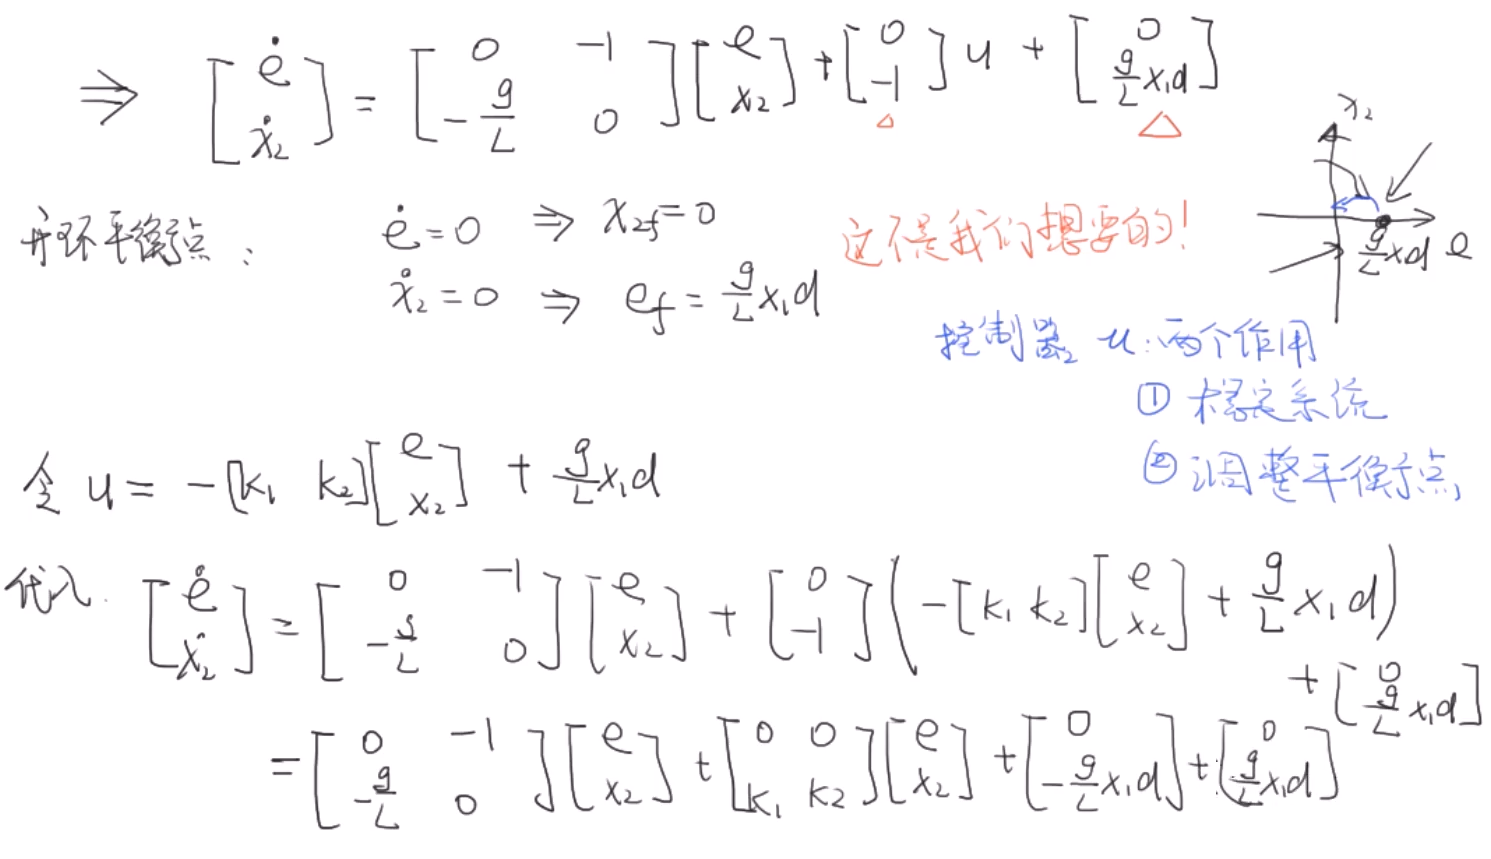 ⇒ [ė ẋ₂] = [0 -1; -g/L 0] [e x₂] + [0 -1] u + [0 g/L x₁d]
x₂
g/L x₁d e
开环平衡点: ė=0 ⇒ x₂f=0 这不是我们想要的!
ẋ₂=0 ⇒ ef = g/L x₁d
控制器, u:两个作用
① 稳定系统
② 调整平衡点,
令 u = -[k₁ k₂] [e x₂] + g/L x₁d
代入. [ė ẋ₂] = [0 -1; -g/L 0] [e x₂] + [0 -1] (-[k₁ k₂] [e x₂] + g/L x₁d)
+ [0 g/L x₁d]
= [0 -1; -g/L 0] [e x₂] + [0 0; k₁ k₂] [e x₂] + [0 -g/L x₁d] + [0 g/L x₁d]